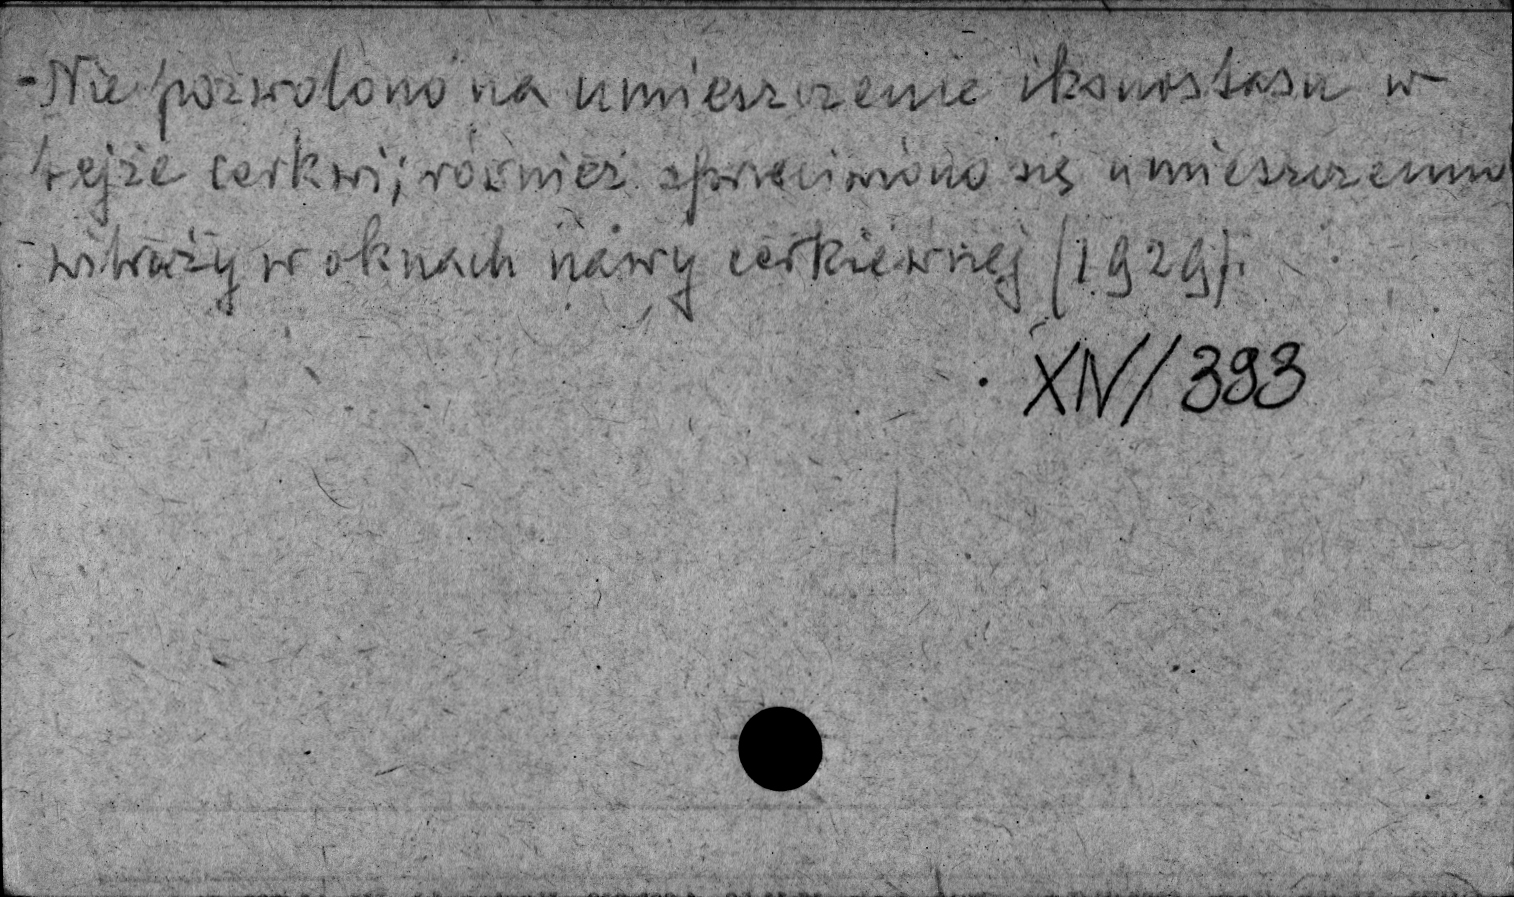 - Nie pozwolono na umieszczenie ikonostasu w
tejże cerkwi; również sprzeciwiono się umieszczeniu
witraży w oknach nawy cerkiewnej (1929).
XIV/393